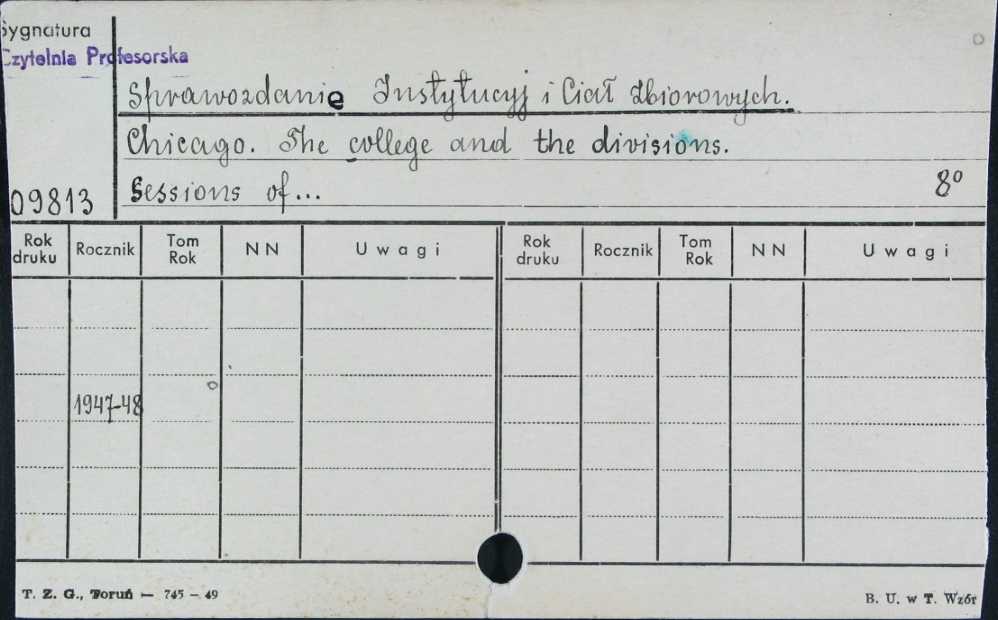 Sygnatura
Czytelnia Profesorska
Sprawozdanie Instytucyj i Ciał Zbiorowych.
Chicago. The college and the divisions.
Sessions of... 8°
09813
Rok druku Rocznik Tom Rok NN Uwagi Rok druku Rocznik Tom Rok NN Uwagi
1947-48
T. Z. G., Toruń — 745 — 49 B. U. w T. Wzór